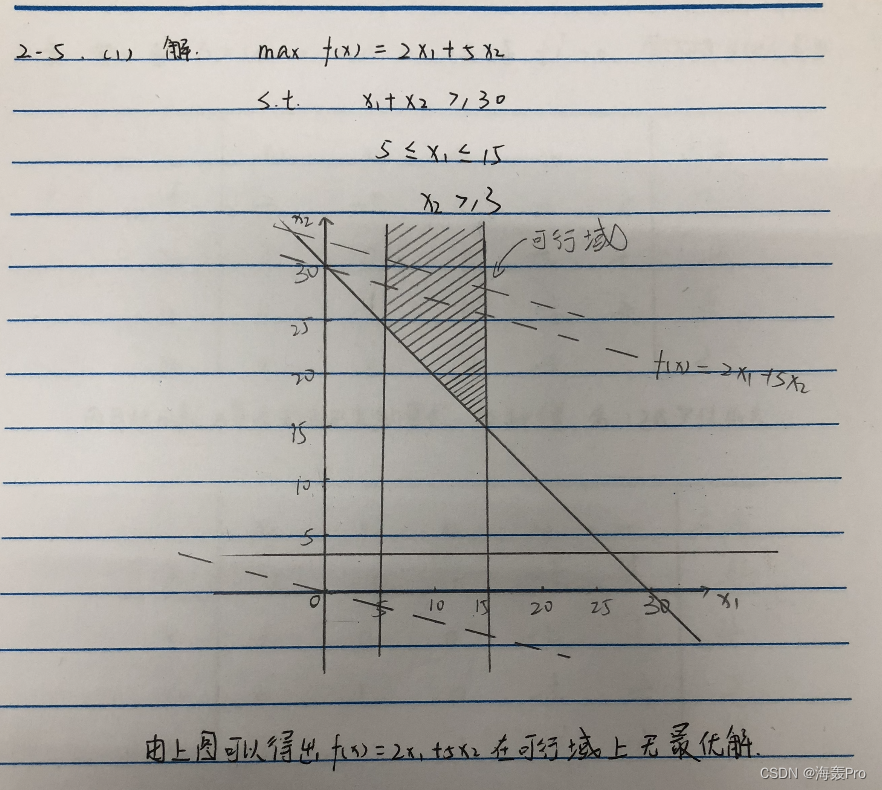 2-5. (1) 解. max f(x) = 2x₁+5x₂
s.t. x₁+x₂ ≥ 30
5 ≤ x₁ ≤ 15
x₂ ≥ 3
x₂
可行域
30
25
f(x) = 2x₁+5x₂
20
15
10
5
0 5 10 15 20 25 30 x₁
由上图可以得出, f(x)=2x₁+5x₂ 在可行域上无最优解.
CSDN @海轰Pro